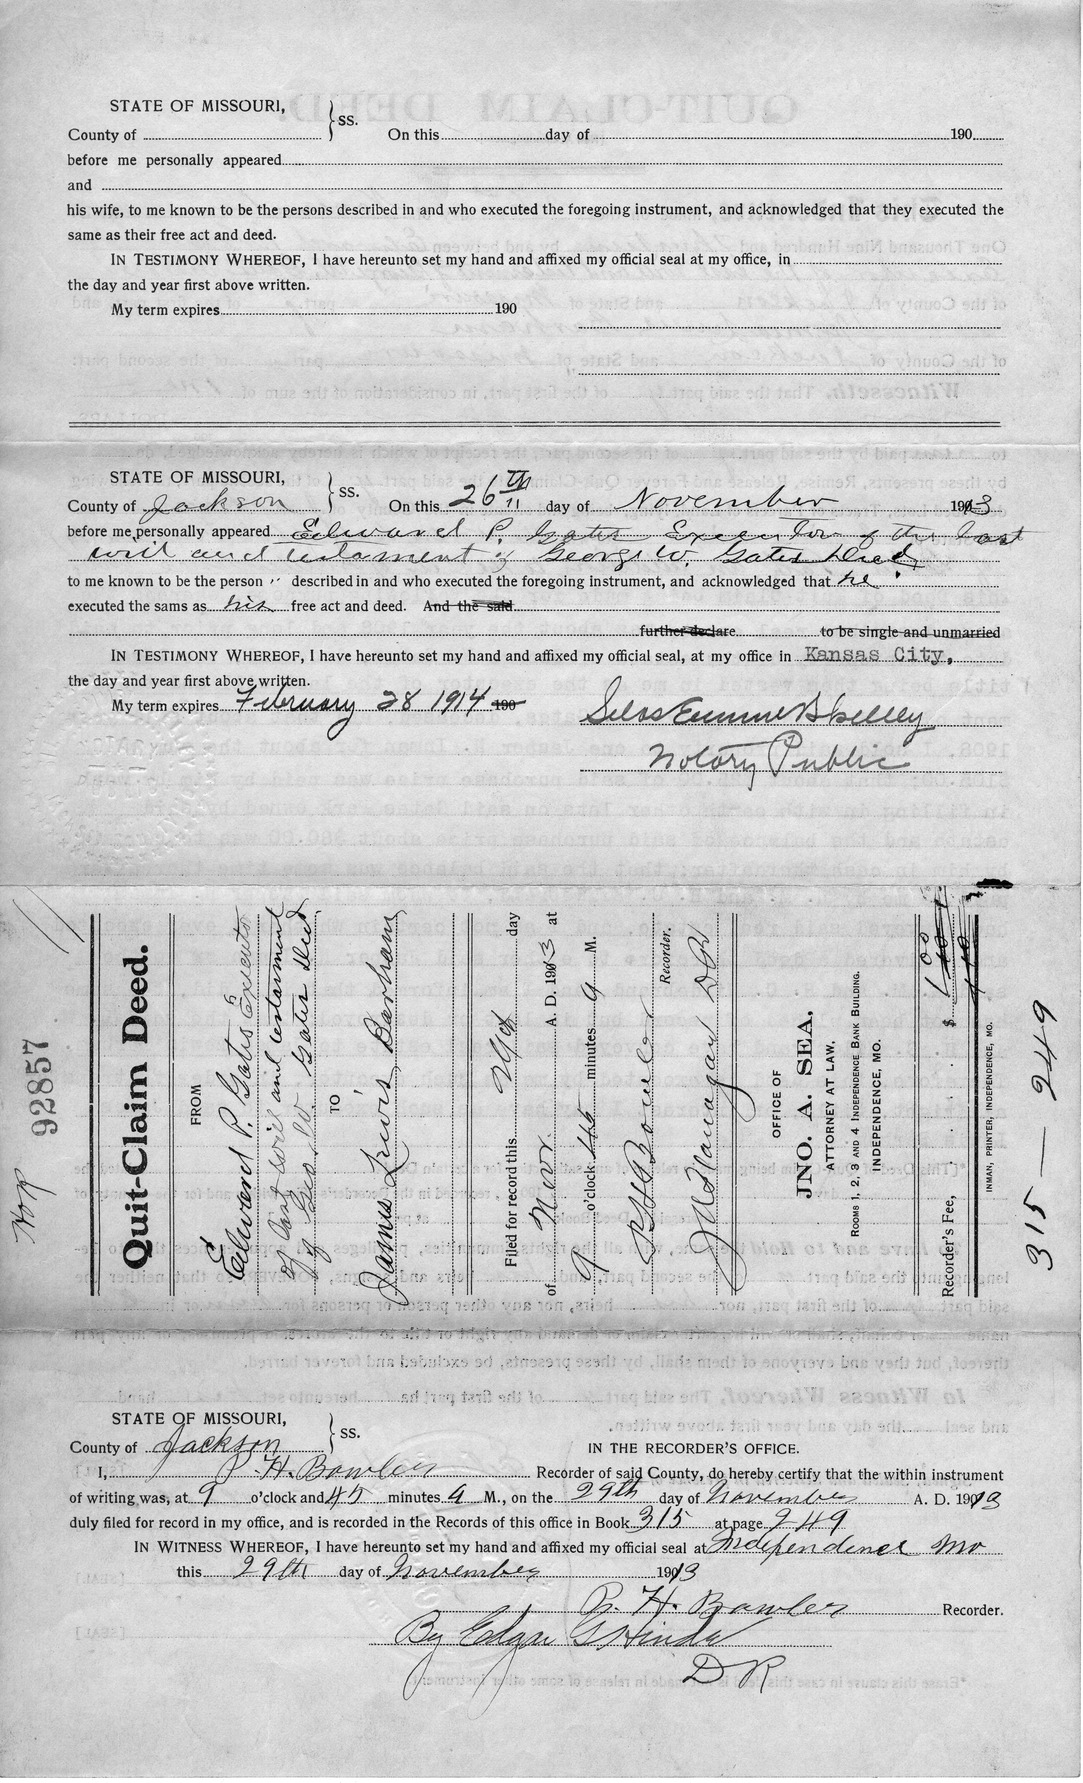 STATE OF MISSOURI,
County of } ss. On this day of 190
before me personally appeared
and
his wife, to me known to be the persons described in and who executed the foregoing instrument, and acknowledged that they executed the
same as their free act and deed.
IN TESTIMONY WHEREOF, I have hereunto set my hand and affixed my official seal at my office, in
the day and year first above written.
My term expires 190
STATE OF MISSOURI,
County of Jackson } ss. On this 26th day of November 1913
before me personally appeared Edward P. Gates Executor of the last
will and testament of George W. Gates Decd
to me known to be the person " described in and who executed the foregoing instrument, and acknowledged that he
executed the sams as his free act and deed. And the said
further declare to be single and unmarried
IN TESTIMONY WHEREOF, I have hereunto set my hand and affixed my official seal, at my office in Kansas City,
the day and year first above written.
My term expires February 28 1914 190
Notary Public
92857
Quit-Claim Deed.
FROM
Edward P. Gates Executo
of last will and testament
of Geo. W. Gates Decd.
TO
James Lewis Barham
Filed for record this 29th day
of Novr. A. D. 1913 at
9 o'clock 45 minutes a M.
P. H. Bowler Recorder.
J W Flanagan DR
OFFICE OF
JNO. A. SEA,
ATTORNEY AT LAW,
ROOMS 1, 2, 3 AND 4 INDEPENDENCE BANK BUILDING.
INDEPENDENCE, MO.
Recorder's Fee, $ 1 00
INMAN, PRINTER, INDEPENDENCE, MO.
315 — 249
STATE OF MISSOURI,
County of Jackson } ss. IN THE RECORDER'S OFFICE.
I, P. H. Bowler Recorder of said County, do hereby certify that the within instrument
of writing was, at 9 o'clock and 45 minutes a M., on the 29th day of November A. D. 1913
duly filed for record in my office, and is recorded in the Records of this office in Book 315 at page 249
IN WITNESS WHEREOF, I have hereunto set my hand and affixed my official seal at Independence Mo
this 29th day of November 1913
P. H. Bowler Recorder.
By Edgar G Hinde
DR